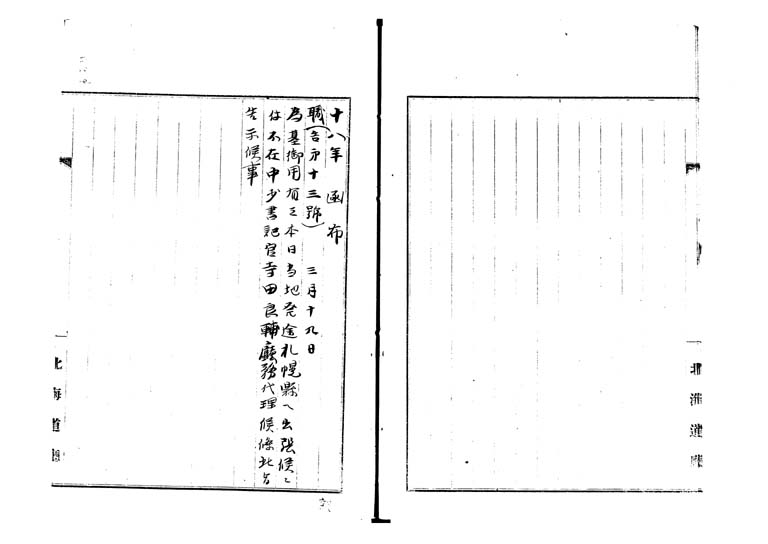 十八年 函布
職(告第十三號) 三月十九日
為其御用有之本日当地発途札幌縣へ出張候ニ
付不在中少書記官寺田良輔廰務代理候條此旨
告示候事
北海道廰
北海道廰